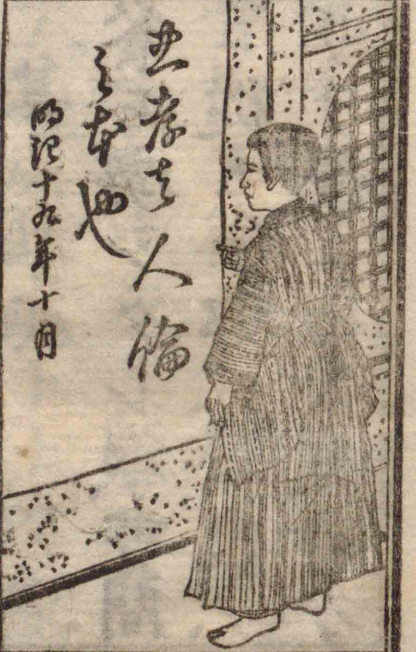 忠孝者人倫
之本也
明治十九年十月